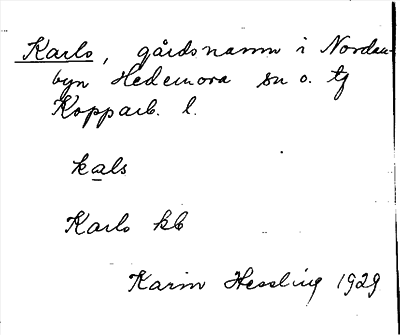 Karls, gårdsnamn i Nordan-
byn Hedemora sn o. tg
Kopparb. l.
kals
Karls kb
Karin Hessling 1929